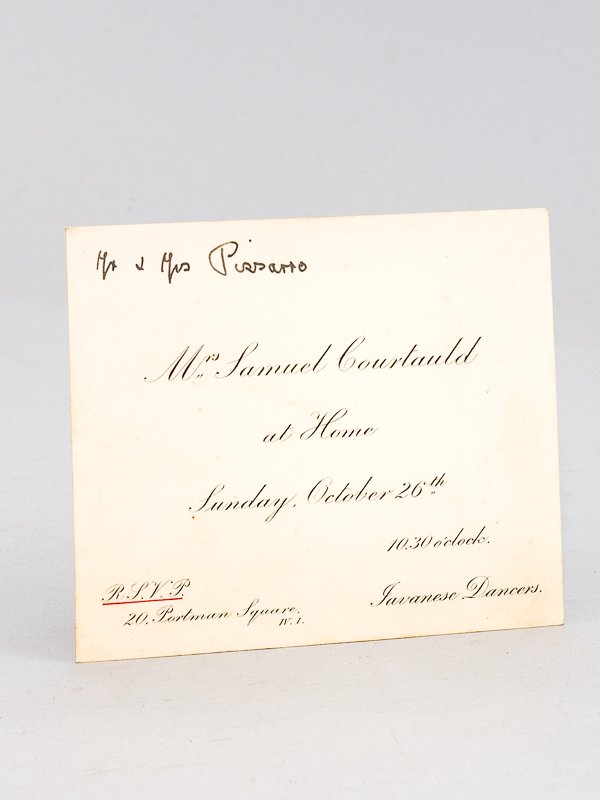 Mr & Mrs Pissarro
Mrs Samuel Courtauld
at Home
Sunday, October 26th
10.30 o'clock.
R.S.V.P.
20, Portman Square,
W.1.
Javanese Dancers.